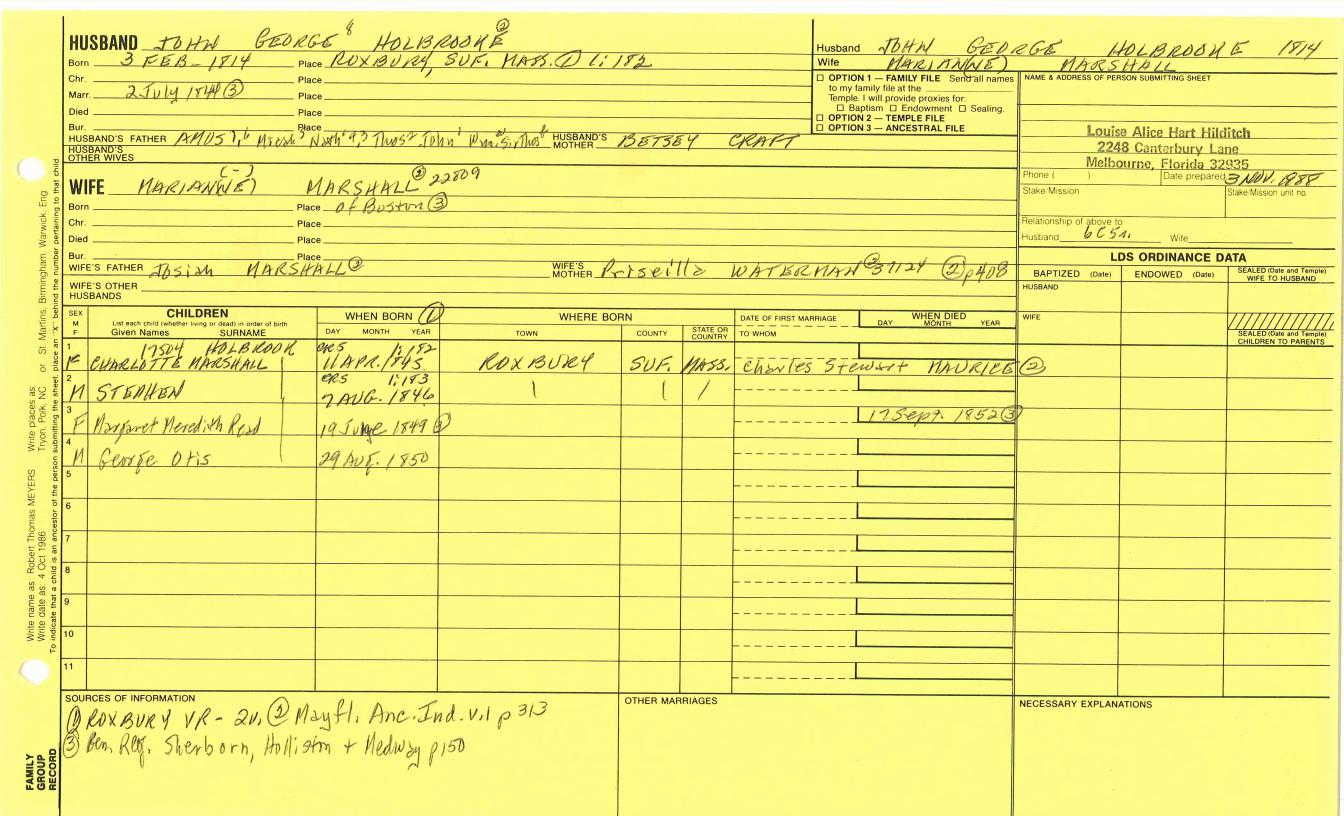 HUSBAND JOHN GEORGE 8 HOLBROOKE ②
Born 3 FEB - 1814 Place ROXBURY, SUF. MASS. ① 1:182
Chr. Place
Marr. 2 July 1844 ③ Place
Died Place
Bur. Place
HUSBAND'S FATHER AMOS HUSBAND'S MOTHER BETSEY CRAFT
HUSBAND'S OTHER WIVES
Husband JOHN GEORGE HOLBROOKE 1814
Wife MARIAN(NE) MARSHALL
☐ OPTION 1 — FAMILY FILE Send all names
to my family file at the
Temple. I will provide proxies for:
☐ Baptism ☐ Endowment ☐ Sealing.
☐ OPTION 2 — TEMPLE FILE
☐ OPTION 3 — ANCESTRAL FILE
NAME & ADDRESS OF PERSON SUBMITTING SHEET
Louise Alice Hart Hilditch
2248 Canterbury Lane
Melbourne, Florida 32935
Phone ( ) Date prepared 3 NOV. 1988
Stake Mission Stake Mission unit no.
Relationship of above to
Husband 6C5r. Wife
(-)
WIFE MARIAN(NE) MARSHALL ② 22809
Born Place of Boston ③
Chr. Place
Died Place
Bur. Place
WIFE'S FATHER Josiah MARSHALL ② WIFE'S MOTHER Priscilla WATERMAN ② 37124 ② p408
WIFE'S OTHER HUSBANDS
LDS ORDINANCE DATA
BAPTIZED (Date) ENDOWED (Date) SEALED (Date and Temple) WIFE TO HUSBAND
HUSBAND
WIFE
SEALED (Date and Temple) CHILDREN TO PARENTS
SEX M F CHILDREN WHEN BORN ① WHERE BORN DATE OF FIRST MARRIAGE WHEN DIED
List each child (whether living or dead) in order of birth
Given Names SURNAME DAY MONTH YEAR TOWN COUNTY STATE OR COUNTRY TO WHOM DAY MONTH YEAR
1 17504 HOLBROOK CRS 1:182
F CHARLOTTE MARSHALL 11 APR. 1845 ROXBURY SUF. MASS. Charles Stewart MAURICE ②
2 CRS 1:183
M STEPHEN 7 AUG. 1846
3 17 Sept. 1852 ③
F Margaret Meredith Read 19 June 1849 ③
4
M George Otis 29 Aug. 1850
5
6
7
8
9
10
11
SOURCES OF INFORMATION OTHER MARRIAGES NECESSARY EXPLANATIONS
① ROXBURY VR - 2v. ② Mayfl. Anc. Ind. v.1 p 313
③ Sherborn, Holliston + Medway p150
Write name as: Robert Thomas MEYERS Write places as:
Write date as: 4 Oct 1986 Tryon, Polk, NC or St. Martins, Birmingham, Warwick, Eng
To indicate that a child is an ancestor of the person submitting the sheet, place an "X" behind the number pertaining to that child
FAMILY
GROUP
RECORD